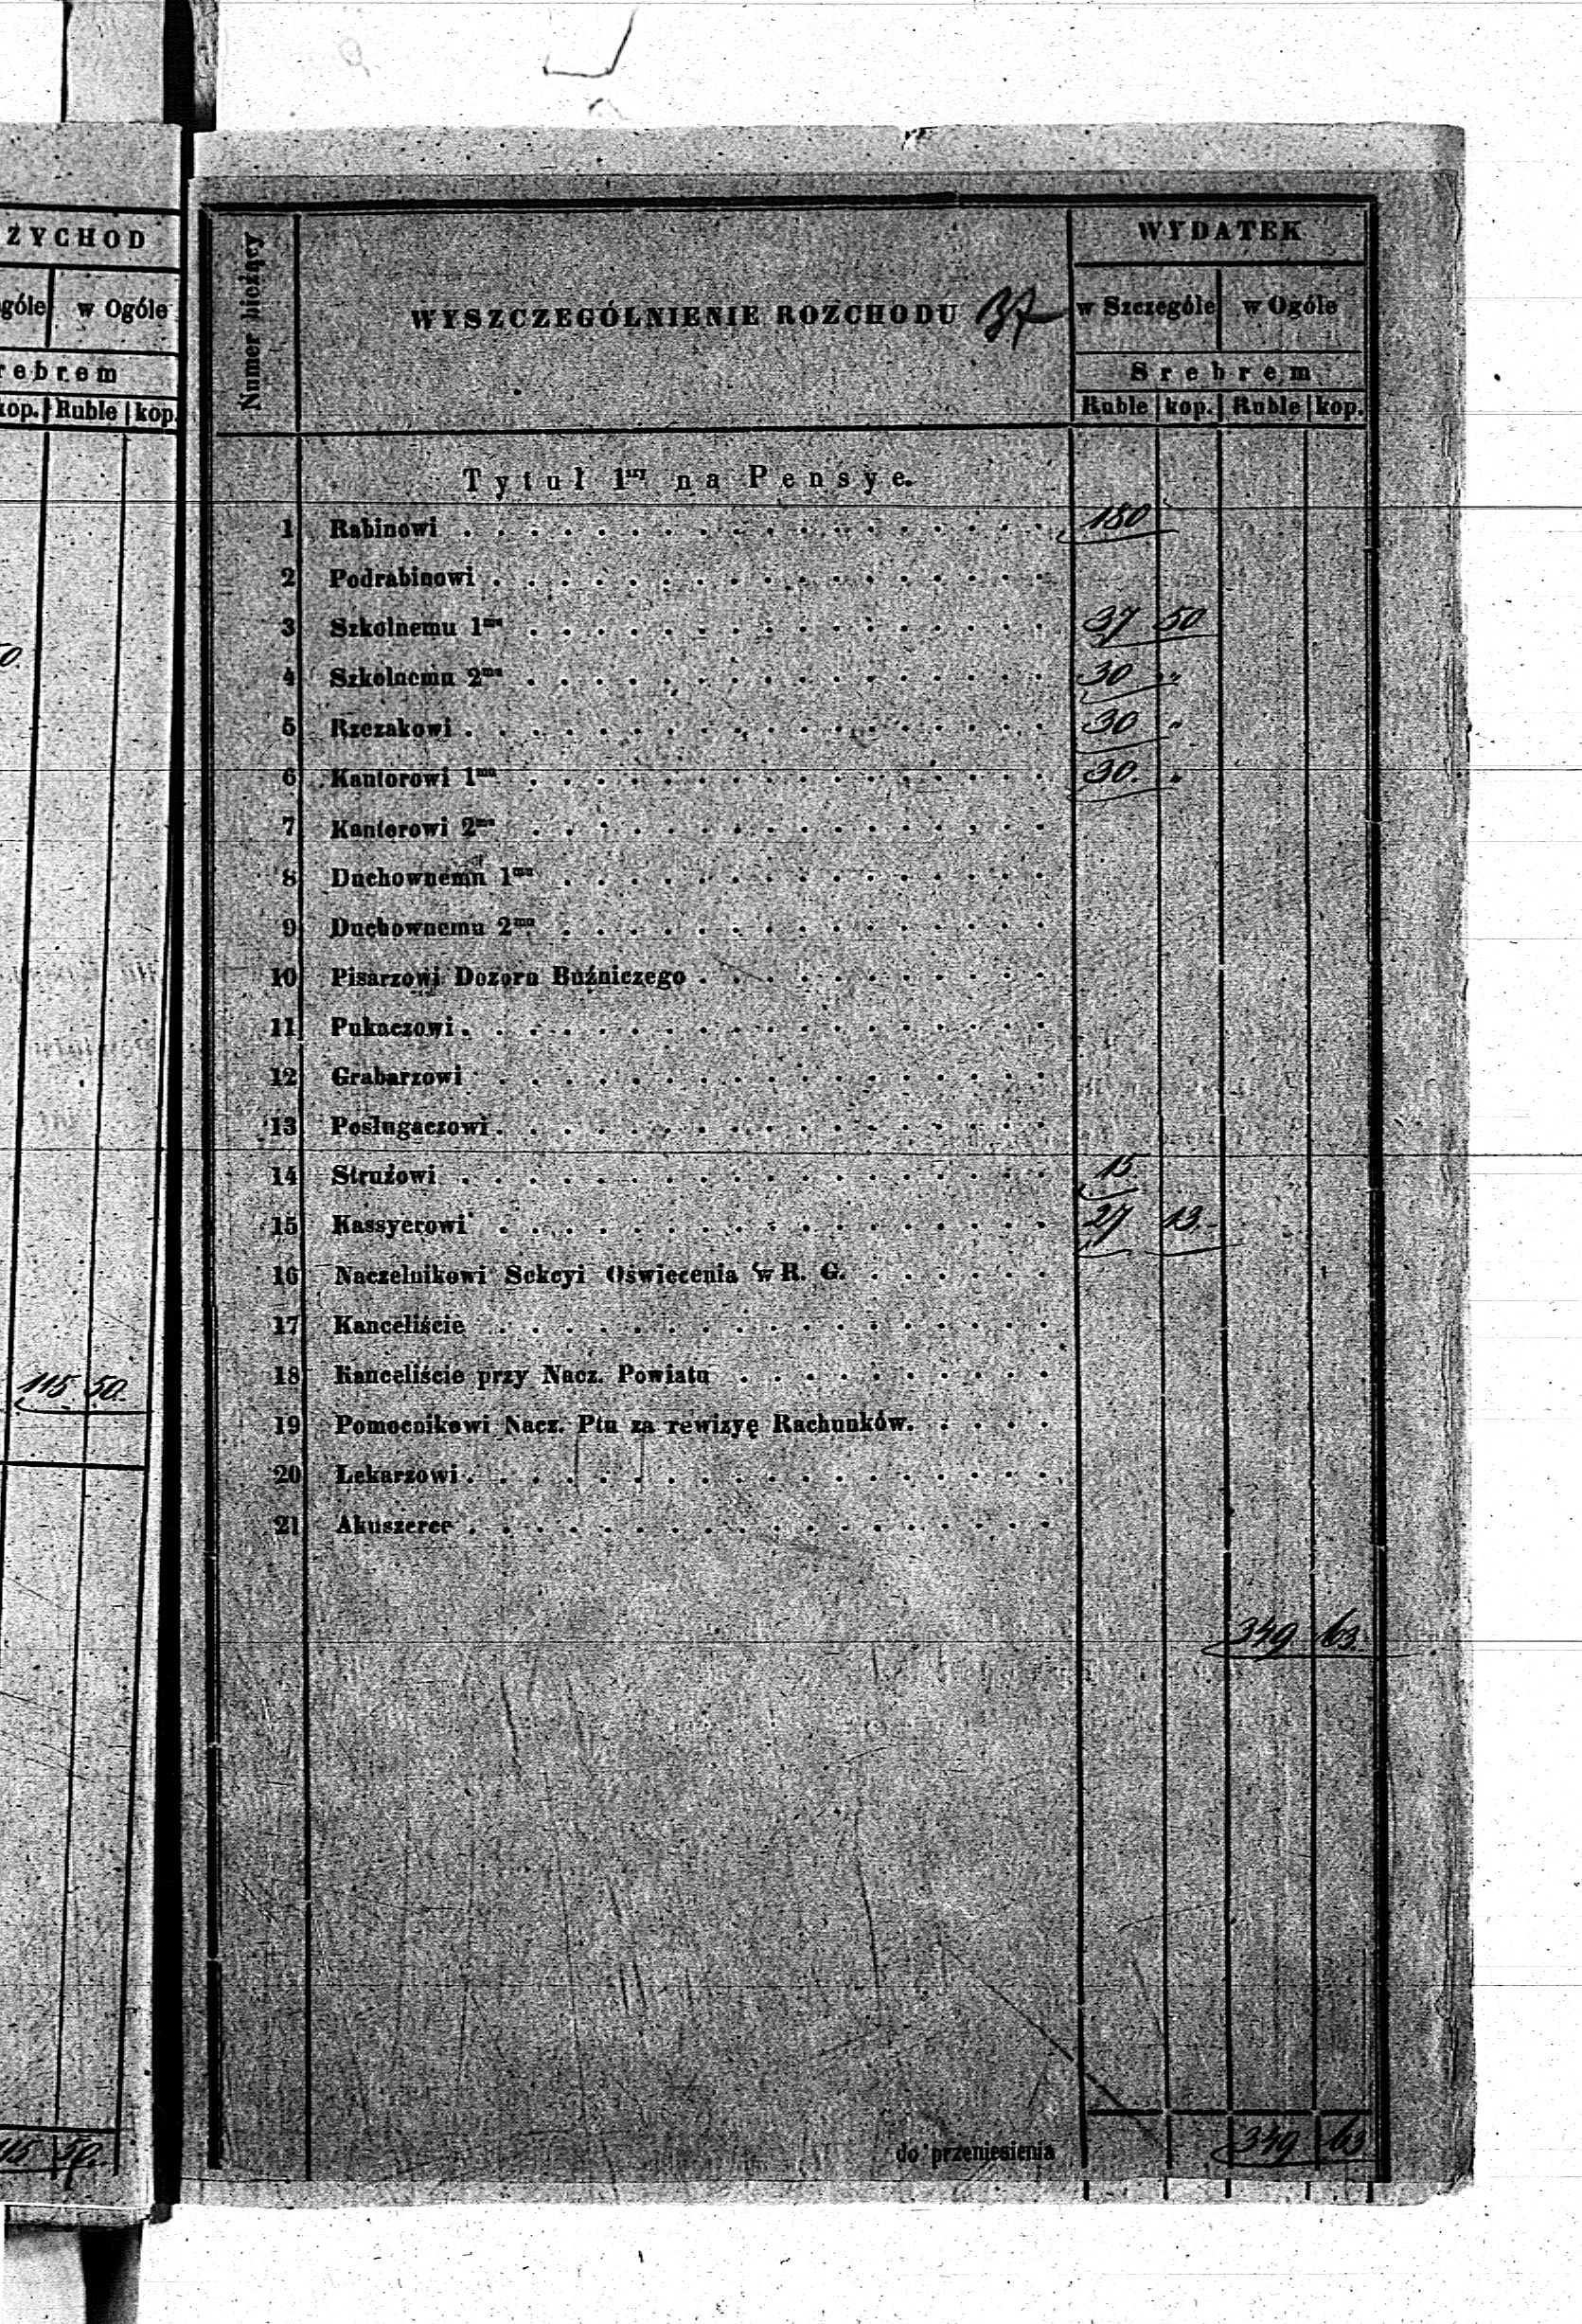 ZYCHOD
góle w Ogóle
rebrem
kop. Ruble kop.
0.
115 50.
115 50.
Numer bieżący
WYSZCZEGÓLNIENIE ROZCHODU 137
WYDATEK
w Szczególe w Ogóle
Srebrem
Ruble kop. Ruble kop.
Tytuł 1szy na Pensye.
1 Rabinowi 180 "
2 Podrabinowi
3 Szkolnemu 1mu 37 50
4 Szkolnemu 2mu 30 "
5 Rzezakowi 30 "
6 Kantorowi 1mu 30. "
7 Kantorowi 2mu
8 Duchownemu 1mu
9 Duchownemu 2mu
10 Pisarzowi Dozoru Buźniczego
11 Pukaczowi
12 Grabarzowi
13 Posługaczowi
14 Strużowi 15
15 Kassyerowi 27 13.
16 Naczelnikowi Sekcyi Oświecenia w R. G.
17 Kanceliście
18 Kanceliście przy Nacz. Powiatu
19 Pomocnikowi Nacz. Ptu za rewizyę Rachunków.
20 Lekarzowi
21 Akuszerce
349 63.
do przeniesienia 349 63